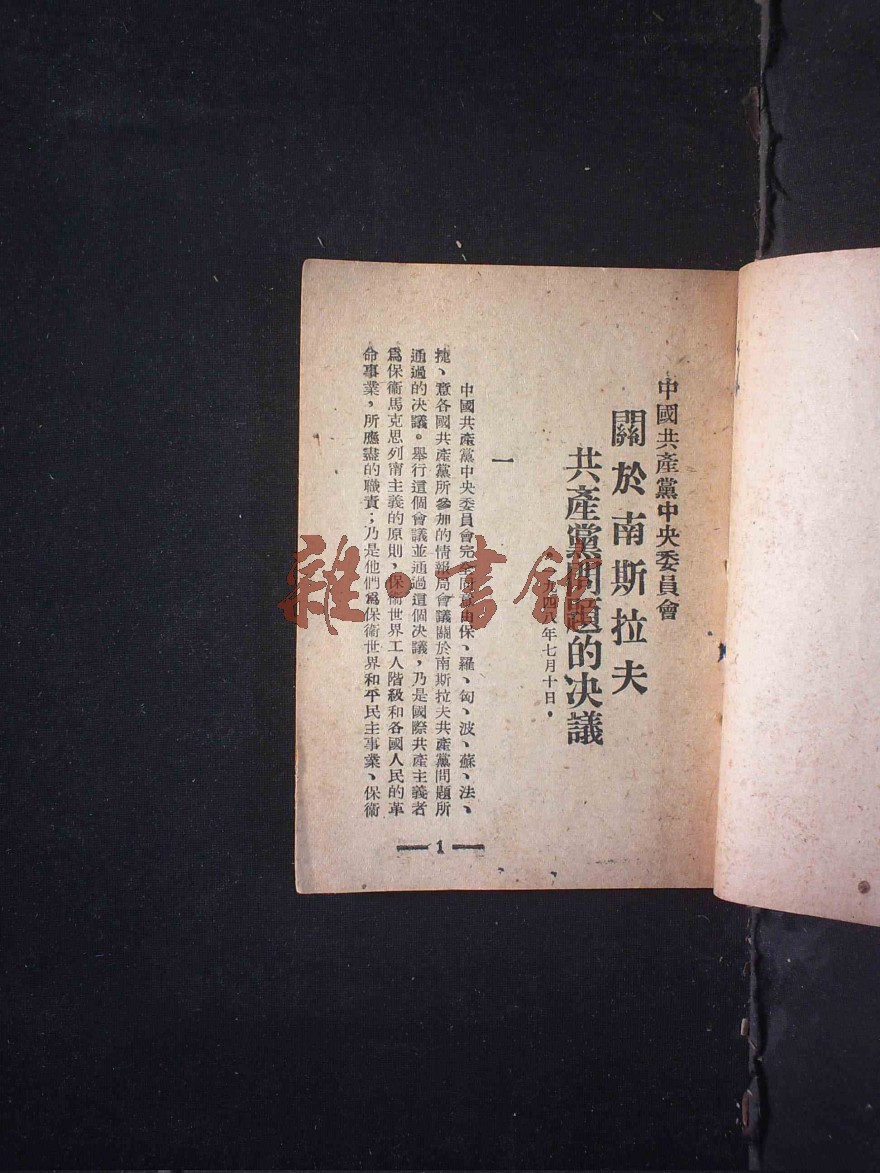 中國共產黨中央委員會
關於南斯拉夫
共產黨問題的決議
九四八年七月十日，
一
中國共產黨中央委員會完全同意由保、羅、匈、波、蘇、法、
捷、意各國共產黨所參加的情報局會議關於南斯拉夫共產黨問題所
通過的決議。舉行這個會議並通過這個決議，乃是國際共產主義者
爲保衞馬克思列甯主義的原則，保衞世界工人階級和各國人民的革
命事業，所應盡的職責；乃是他們爲保衞世界和平民主事業、保衞
1
雜·書館